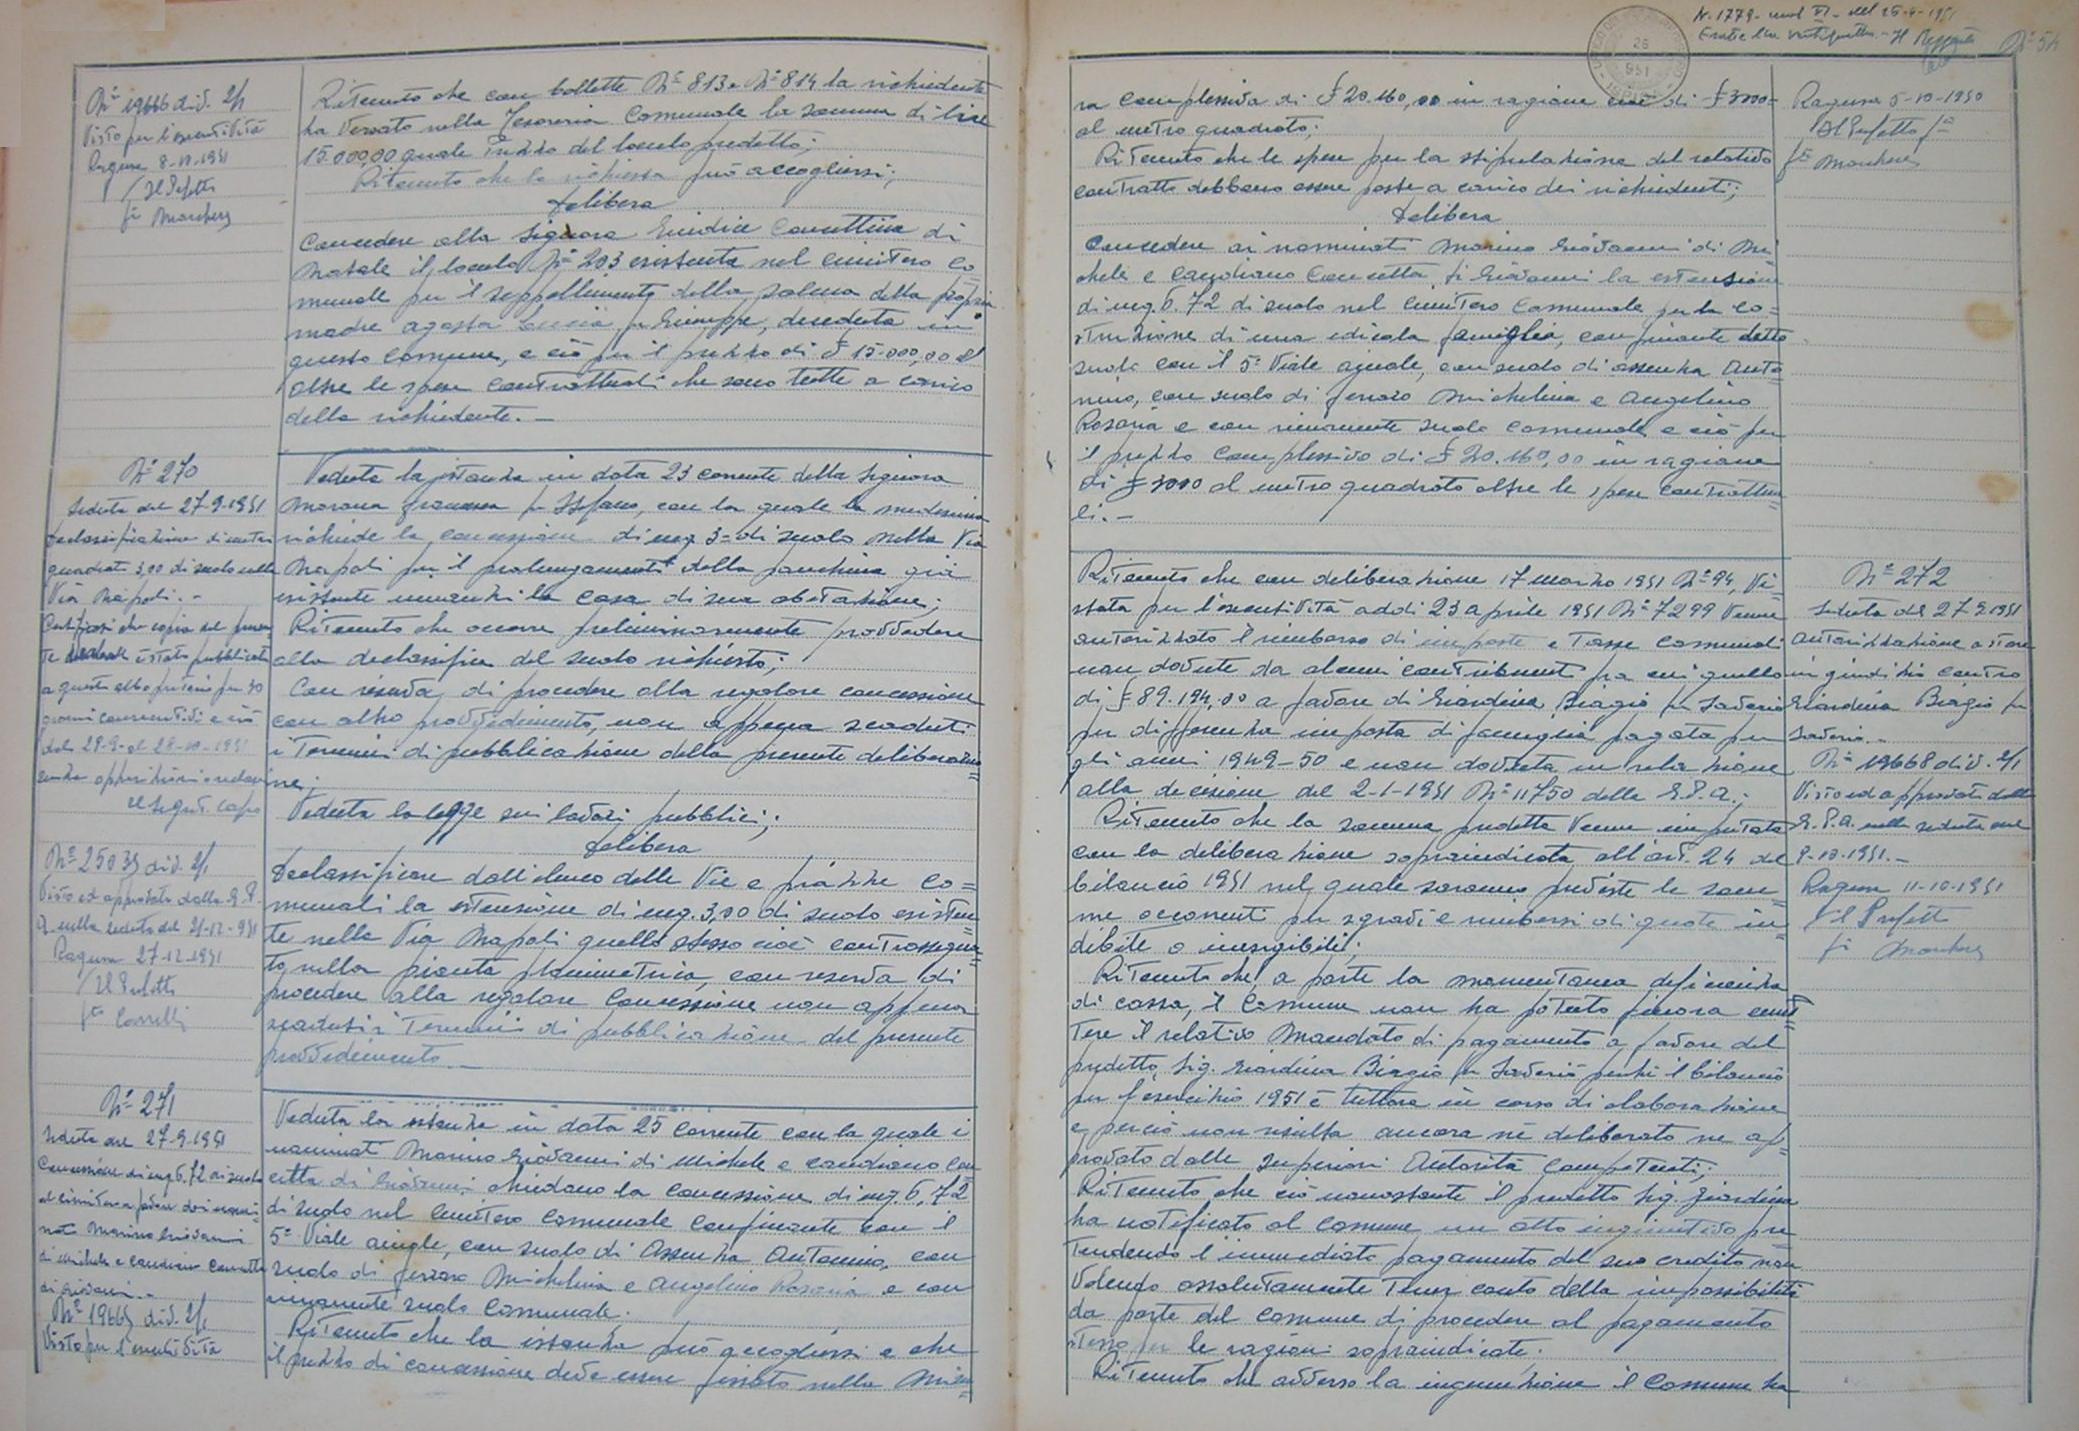 Nº 19666 div. 2/1
Visto per l'esecutività
Ragusa 8-10-1951
Il Prefetto
fto
Ritenuto che con bollette Nº 813 e Nº 814 la richiedente
ha versato nella Tesoreria Comunale la somma di lire
15.000,00 quale prezzo del loculo predetto;
Ritenuto che la richiesta può accogliersi;
delibera
Concedere alla Signora Giudice Concettina di
Natale il loculo Nº 203 esistente nel cimitero co=
munale per il seppellimento della salma della propria
madre Agosta Lucia fu Giuseppe, deceduta in
questo Comune, e ciò per il prezzo di £ 15.000,00
oltre le spese contrattuali che sono tutte a carico
della richiedente. —
Nº 270
Seduta del 27-9-1951
Declassificazione di metri
quadrati 3,00 di suolo nella
Via Napoli. -
Certificasi che copia del presen
te è stata pubblicata
a questo albo pretorio per 30
giorni consecutivi e ciò
dal 29-9 al 28-10-1951
senza opposizioni o reclami
Il Segret. Capo
div. 2/1
Visto ed approvato dalla G.P.
A. nella seduta del 21-12-951
Ragusa 27-12-1951
Il Prefetto
fto
Veduta la istanza in data 23 corrente della Signora
Morana Francesca fu Stefano, con la quale la medesima
richiede la concessione di mq 3= di suolo nella Via
Napoli per il prolungamento della panchina già
esistente innanzi la casa di sua abitazione;
Ritenuto che occorre preliminarmente provvedere
alla declassifica del suolo richiesto;
Con riserva di procedere alla regolare concessione
con altro provvedimento, non appena scaduti
i termini di pubblicazione della presente deliberazio=
ne;
Veduta la legge sui lavori pubblici;
delibera
Declassificare dall'elenco delle Vie e piazze co=
munali la estensione di mq. 3,00 di suolo esisten=
te nella Via Napoli quello stesso cioè contrassegna=
to nella pianta planimetrica, con riserva di
procedere alla regolare concessione non appena
scaduti i termini di pubblicazione del presente
provvedimento. —
Nº 271
Seduta del 27-9-1951
Concessione di mq 6,72 di suolo
al cimitero a favore dei nomi=
nati Marino Giovanni
di Michele e Candiano Concetta
di Giovanni. -
div. 2/1
Visto per l'esecutività
Veduta la istanza in data 25 corrente con la quale i
nominati Marino Giovanni di Michele e Candiano Con
cetta di Giovanni chiedono la concessione di mq. 6,72
di suolo nel cimitero comunale confinante con il
5º Viale, con suolo di Assenza Antonino, con
suolo di Ferraro Michelina e Angelino Rosaria e con
rimanente suolo Comunale.
Ritenuto che la istanza può accogliersi e che
il prezzo di concessione deve essere fissato nella misu=
N. 1779 del 25-4-1951
26
951
Nº 54
ra complessiva di £ 20.160,00 in ragione cioè di £ 3000=
al metro quadrato;
Ritenuto che le spese per la stipulazione del relativo
contratto debbano essere poste a carico dei richiedenti;
delibera
Concedere ai nominati Marino Giovanni di Mi
chele e Candiano Concetta di Giovanni la estensione
di mq. 6.72 di suolo nel cimitero Comunale per la co=
struzione di una edicola famiglia, confinante detto
suolo con il 5º Viale, con suolo di Assenza Anto=
nino, con suolo di Ferraro Michelina e Angelino
Rosaria e con rimanente suolo Comunale e ciò per
il prezzo complessivo di £ 20.160,00 in ragione
di £ 3000 al metro quadrato oltre le spese contrattua=
li. —
Ragusa 5-10-1950
Il Prefetto
fto
Ritenuto che con deliberazione 17 marzo 1951 Nº 94, vi=
stata per l'esecutività addì 23 aprile 1951 Nº 7299 venne
autorizzato il rimborso di imposte e tasse comunali
non dovute da alcuni contribuenti fra cui quello
di £ 89.194,00 a favore di Giardina Biagio fu Saverio
per differenza imposta di famiglia pagata per
gli anni 1949-50 e non dovuta in relazione
alla decisione del 2-1-1951 Nº 11750 della G.P.A.;
Ritenuto che la somma predetta venne imputata
con la deliberazione sopraindicata all'art. 24 del
bilancio 1951 nel quale saranno previste le som=
me occorrenti per sgravi e rimborsi di quote in=
debite o inesigibili;
Ritenuto che, a parte la momentanea deficienza
di cassa, il Comune non ha potuto finora emet=
tere il relativo mandato di pagamento a favore del
predetto Sig. Giardina Biagio fu Saverio perché il bilancio
per l'esercizio 1951 è tuttora in corso di elaborazione
e perciò non risulta ancora né deliberato né ap=
provato dalle superiori Autorità competenti;
Ritenuto che ciò nonostante il predetto Sig. Giardina
ha notificato al Comune un atto ingiuntivo pre
tendendo l'immediato pagamento del suo credito non
volendo assolutamente tener conto della impossibilità
da parte del Comune di procedere al pagamento
stesso per le ragioni sopraindicate.
Ritenuto che avverso la ingiunzione il Comune ha
Nº 272
Seduta del 27-9-1951
Autorizzazione a stare
in giudizio contro
Giardina Biagio fu
Saverio. -
Nº 19668 div. 2/1
Visto ed approvato dalla
G.P.A. nella seduta del
9-10-1951. -
Ragusa 11-10-1951
Il Prefetto
fto